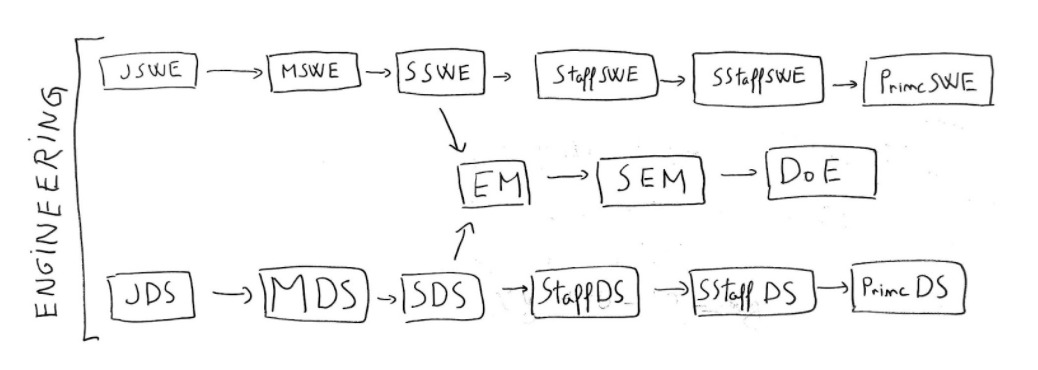 ENGINEERING
JSWE
MSWE
SSWE
StaffSWE
SStaffSWE
PrincSWE
EM
SEM
DoE
JDS
MDS
SDS
StaffDS
SStaff DS
Princ DS